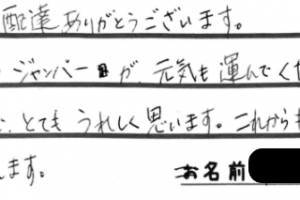 配達ありがとうございます。
ジャンパーが、元気も運んでくだ
とても うれしく思います。これからも
ます。
お名前